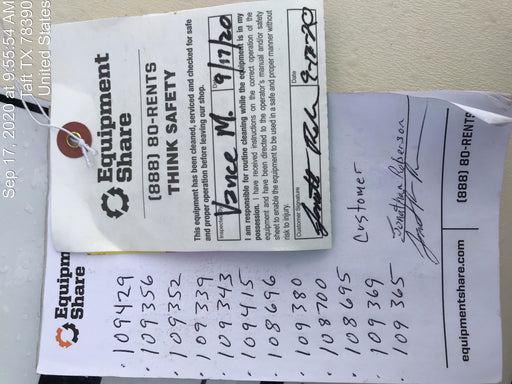 Sep 17, 2020 at 9:53:54 AM
Taft TX 78390
United States
Equipment
Share
(888) 80-RENTS
THINK SAFETY
This equipment has been cleaned, serviced and checked for safe
and proper operation before leaving our shop.
Vance M. 9/17/20
I am responsible for routine cleaning while the equipment is in my
possession. I have received instructions on the correct operation of the
equipment and have been directed to the operator's manual and/or safety
sheet to enable the equipment to be used in a safe and proper manner without
risk to injury.
Customer Signature Date
Equipm
Share
109429
109356
109352
109339
109343
109415
108696
109380
108700
108695
109369
109365
Customer
equipmentshare.com (888) 80-RENTS